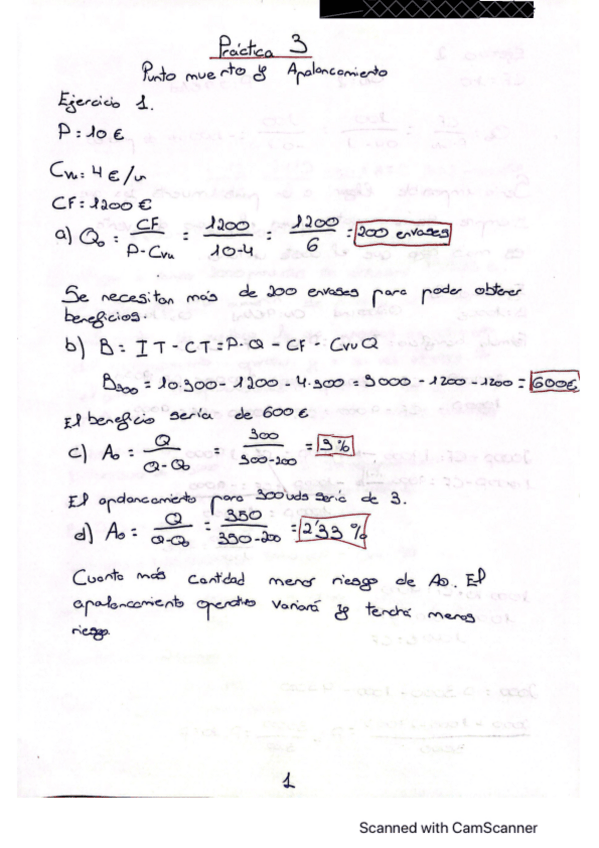 Práctica 3
Punto muerto y Apalancamiento
Ejercicio 1.
P = 10 €
Cvu = 4 €/u
CF = 1200 €
a) Q₀ = CF / P - Cvu = 1200 / 10-4 = 1200 / 6 = 200 envases
Se necesitan más de 200 envases para poder obtener
beneficios.
b) B = IT - CT = P·Q - CF - Cvu Q
B300 = 10·300 - 1200 - 4·300 = 3000 - 1200 - 1200 = 600€
El beneficio sería de 600 €
c) A₀ = Q / Q-Q₀ = 300 / 300-200 = 3%
El apalancamiento para 300 uds sería de 3.
d) A₀ = Q / Q-Q₀ = 350 / 350-200 = 2'33 %
Cuanto más cantidad menor riesgo de A₀. El
apalancamiento operativo variará y tendrá menos
riesgo.
1
Scanned with CamScanner